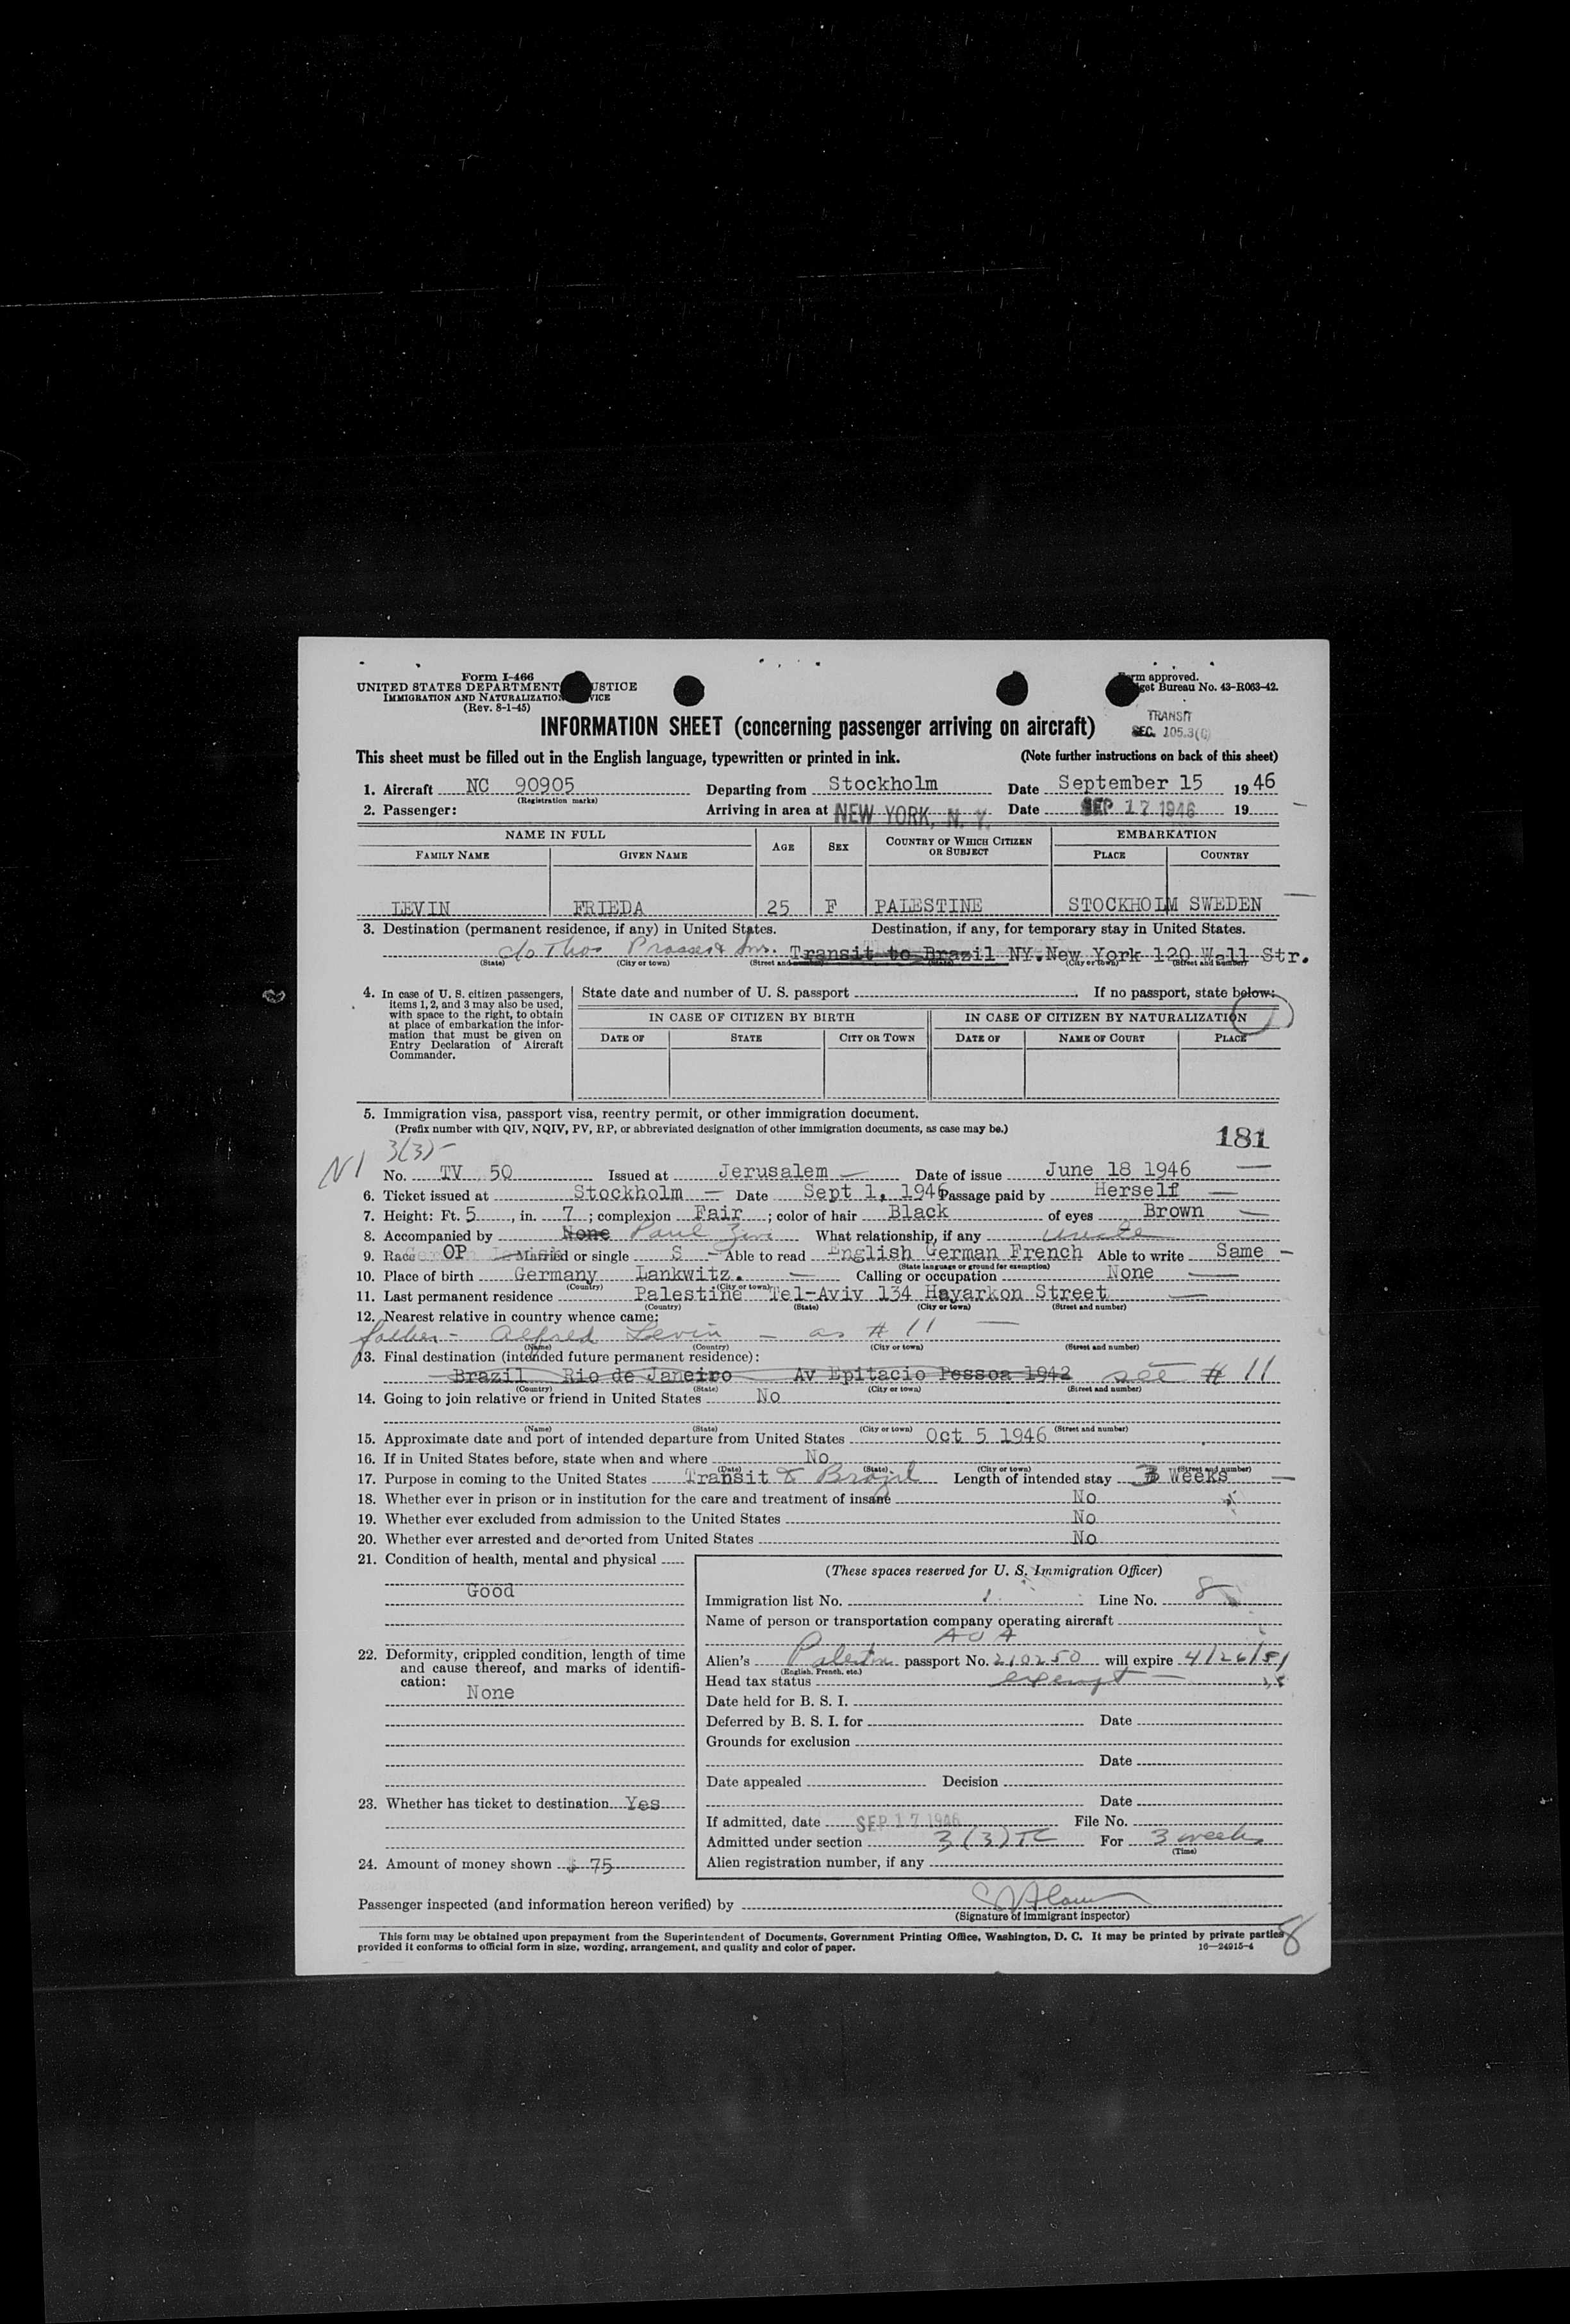 Form I-466
UNITED STATES DEPARTMENT USTICE
IMMIGRATION AND NATURALIZATION VICE
(Rev. 8-1-45)
rm approved.
get Bureau No. 43-R063-42.
INFORMATION SHEET (concerning passenger arriving on aircraft)
TRANSIT
SEC. 105.3(C)
This sheet must be filled out in the English language, typewritten or printed in ink. (Note further instructions on back of this sheet)
1. Aircraft NC 90905 Departing from Stockholm Date September 15 1946
(Registration marks)
2. Passenger: Arriving in area at NEW YORK, N. Y. Date SEP 17 1946 19
NAME IN FULL AGE SEX COUNTRY OF WHICH CITIZEN OR SUBJECT EMBARKATION
FAMILY NAME GIVEN NAME PLACE COUNTRY
LEVIN FRIEDA 25 F PALESTINE STOCKHOLM SWEDEN
3. Destination (permanent residence, if any) in United States. Destination, if any, for temporary stay in United States.
c/o Thos Prosser & Transit to Brazil NY. New York 120 Wall Str.
(State) (City or town) (Street and number) (State) (City or town) (Street and number)
4. In case of U. S. citizen passengers, items 1, 2, and 3 may also be used, with space to the right, to obtain at place of embarkation the information that must be given on Entry Declaration of Aircraft Commander.
State date and number of U. S. passport If no passport, state below:
IN CASE OF CITIZEN BY BIRTH IN CASE OF CITIZEN BY NATURALIZATION
DATE OF STATE CITY OR TOWN DATE OF NAME OF COURT PLACE
5. Immigration visa, passport visa, reentry permit, or other immigration document.
(Prefix number with QIV, NQIV, PV, RP, or abbreviated designation of other immigration documents, as case may be.)
181
3(3)-
NI
No. TV 50 Issued at Jerusalem Date of issue June 18 1946
6. Ticket issued at Stockholm Date Sept 1, 1946 Passage paid by Herself
7. Height: Ft. 5, in. 7; complexion Fair; color of hair Black of eyes Brown
8. Accompanied by None Paul What relationship, if any Uncle
9. Race OP Married or single S Able to read English German French Able to write Same
(State language or ground for exemption)
10. Place of birth Germany Lankwitz. Calling or occupation None
(Country) (City or town)
11. Last permanent residence Palestine Tel-Aviv 134 Hayarkon Street
(Country) (State) (City or town) (Street and number)
12. Nearest relative in country whence came:
father - Alfred Levin - as # 11
(Name) (Country) (City or town) (Street and number)
13. Final destination (intended future permanent residence):
Brazil Rio de Janeiro Av Epitacio Pessoa 1942 see # 11
(Country) (State) (City or town) (Street and number)
14. Going to join relative or friend in United States No
(Name) (State) (City or town) (Street and number)
15. Approximate date and port of intended departure from United States Oct 5 1946
16. If in United States before, state when and where No
(Date) (State) (City or town) (Street and number)
17. Purpose in coming to the United States Transit to Brazil Length of intended stay 3 Weeks
18. Whether ever in prison or in institution for the care and treatment of insane No
19. Whether ever excluded from admission to the United States No
20. Whether ever arrested and deported from United States No
21. Condition of health, mental and physical
Good
22. Deformity, crippled condition, length of time and cause thereof, and marks of identification:
None
23. Whether has ticket to destination Yes
24. Amount of money shown $ 75
(These spaces reserved for U. S. Immigration Officer)
Immigration list No. 1 Line No. 8
Name of person or transportation company operating aircraft
AOA
Alien's Palestine passport No. 210250 will expire 4/26/51
(English, French, etc.)
Head tax status exempt
Date held for B. S. I.
Deferred by B. S. I. for Date
Grounds for exclusion
Date
Date appealed Decision
Date
If admitted, date SEP 17 1946 File No.
Admitted under section 3(3) TC For 3 weeks
(Time)
Alien registration number, if any
Passenger inspected (and information hereon verified) by
(Signature of immigrant inspector)
This form may be obtained upon prepayment from the Superintendent of Documents, Government Printing Office, Washington, D. C. It may be printed by private parties
provided it conforms to official form in size, wording, arrangement, and quality and color of paper. 16—24915-4
8